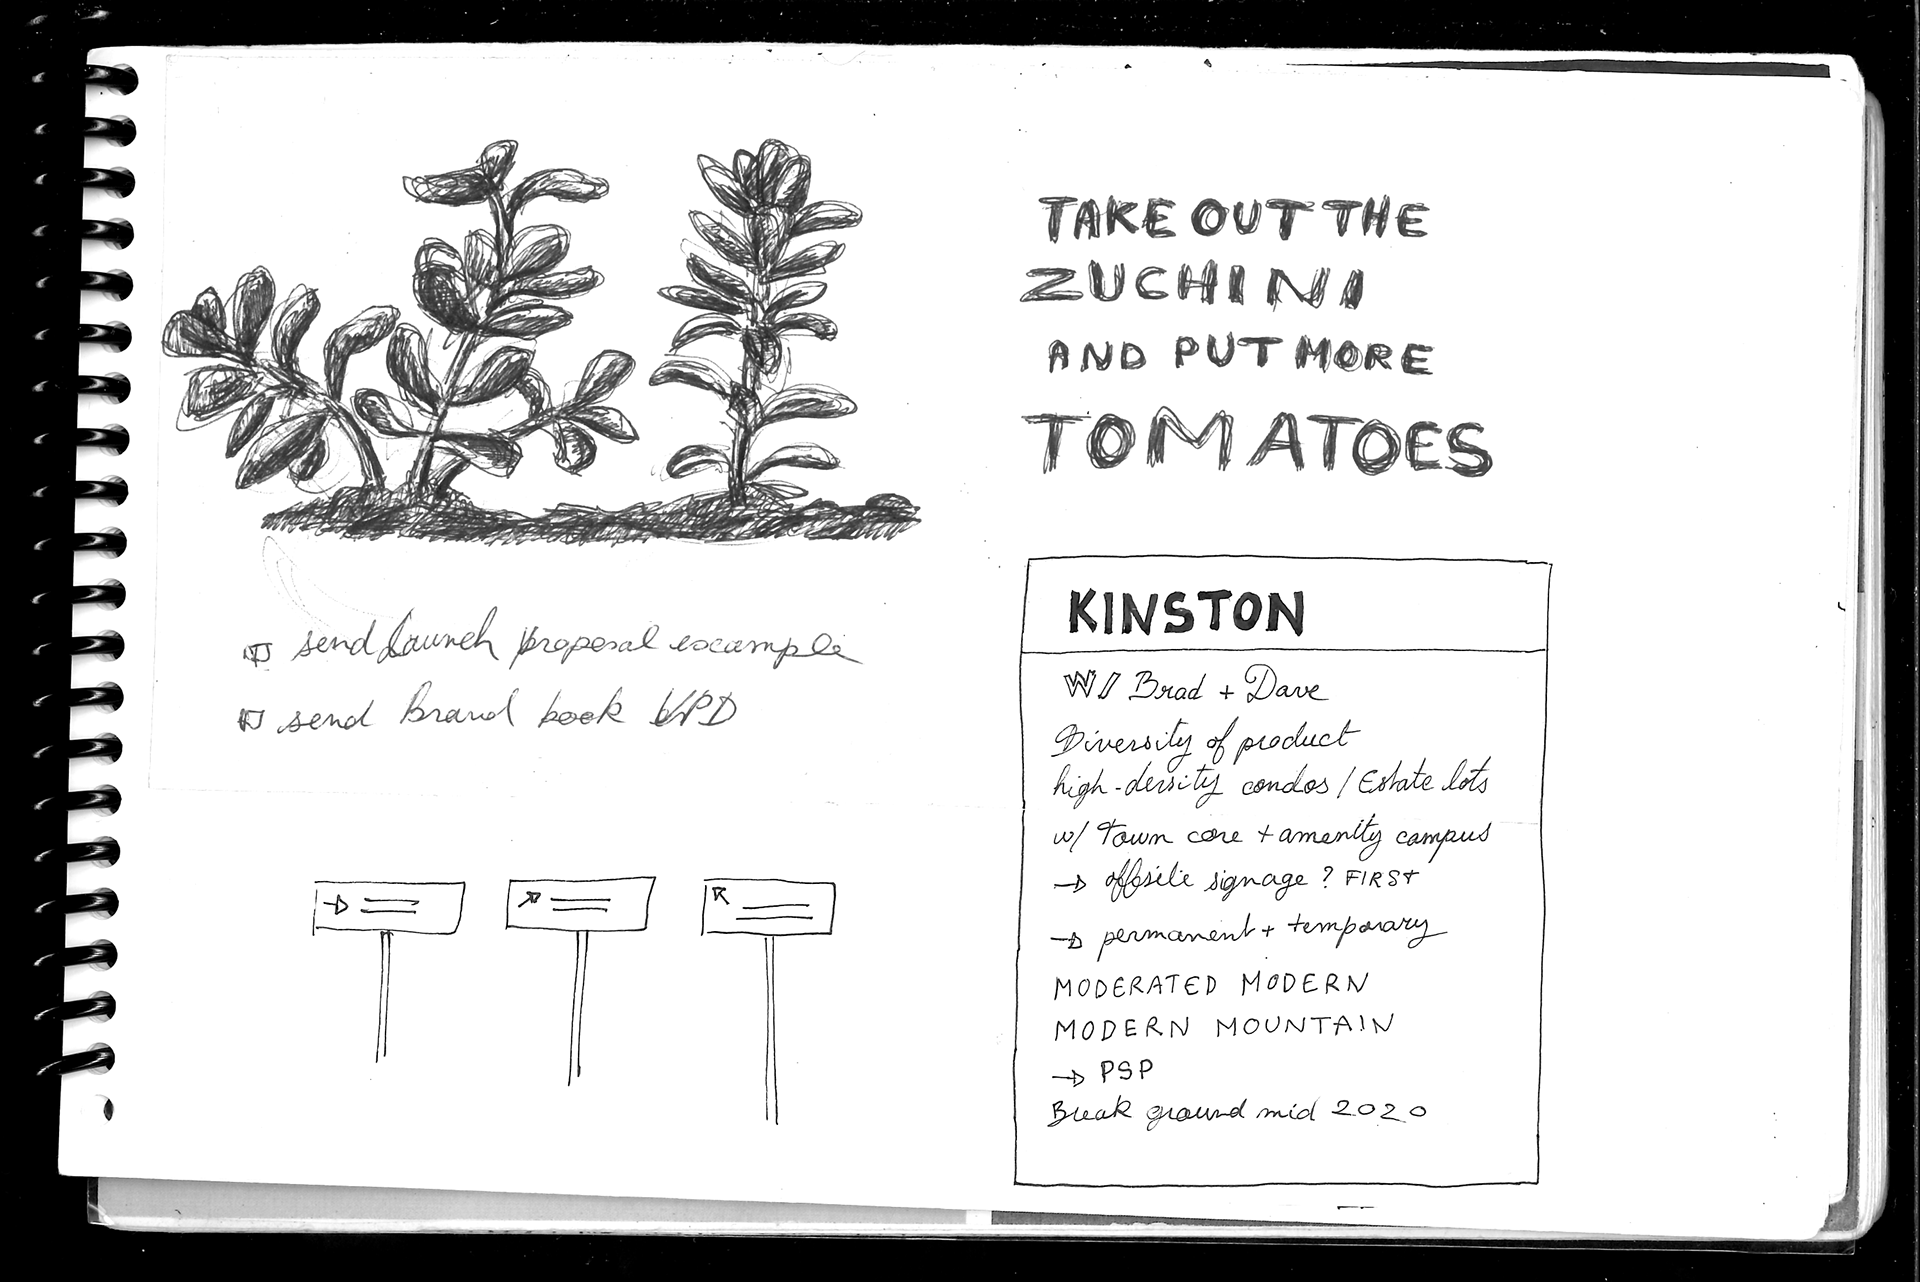 TAKE OUT THE
ZUCHINI
AND PUT MORE
TOMATOES
send Launch proposal escample
send Brand book VPD
KINSTON
W/ Brad + Dave
Diversity of product
high-density condos / Estate lots
w/ Town core + amenity campus
→ offsite signage? FIRST
→ permanent + temporary
MODERATED MODERN
MODERN MOUNTAIN
→ PSP
Break ground mid 2020